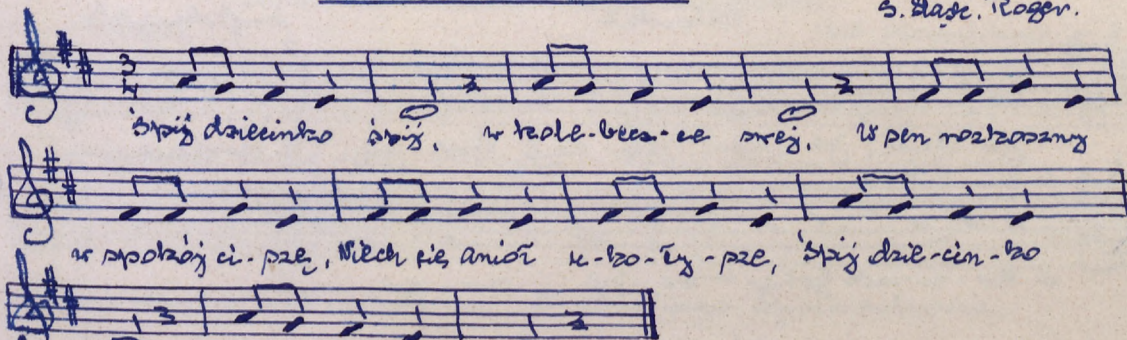 G. Śląsk. Roger.
3
4
Śpij dziecinko śpij, w kole-becz-ce swej, W sen rozkoszny
w spokój ci-szę, Niech się anioł u-ko-ły-sze, Śpij dzie-cin-ko